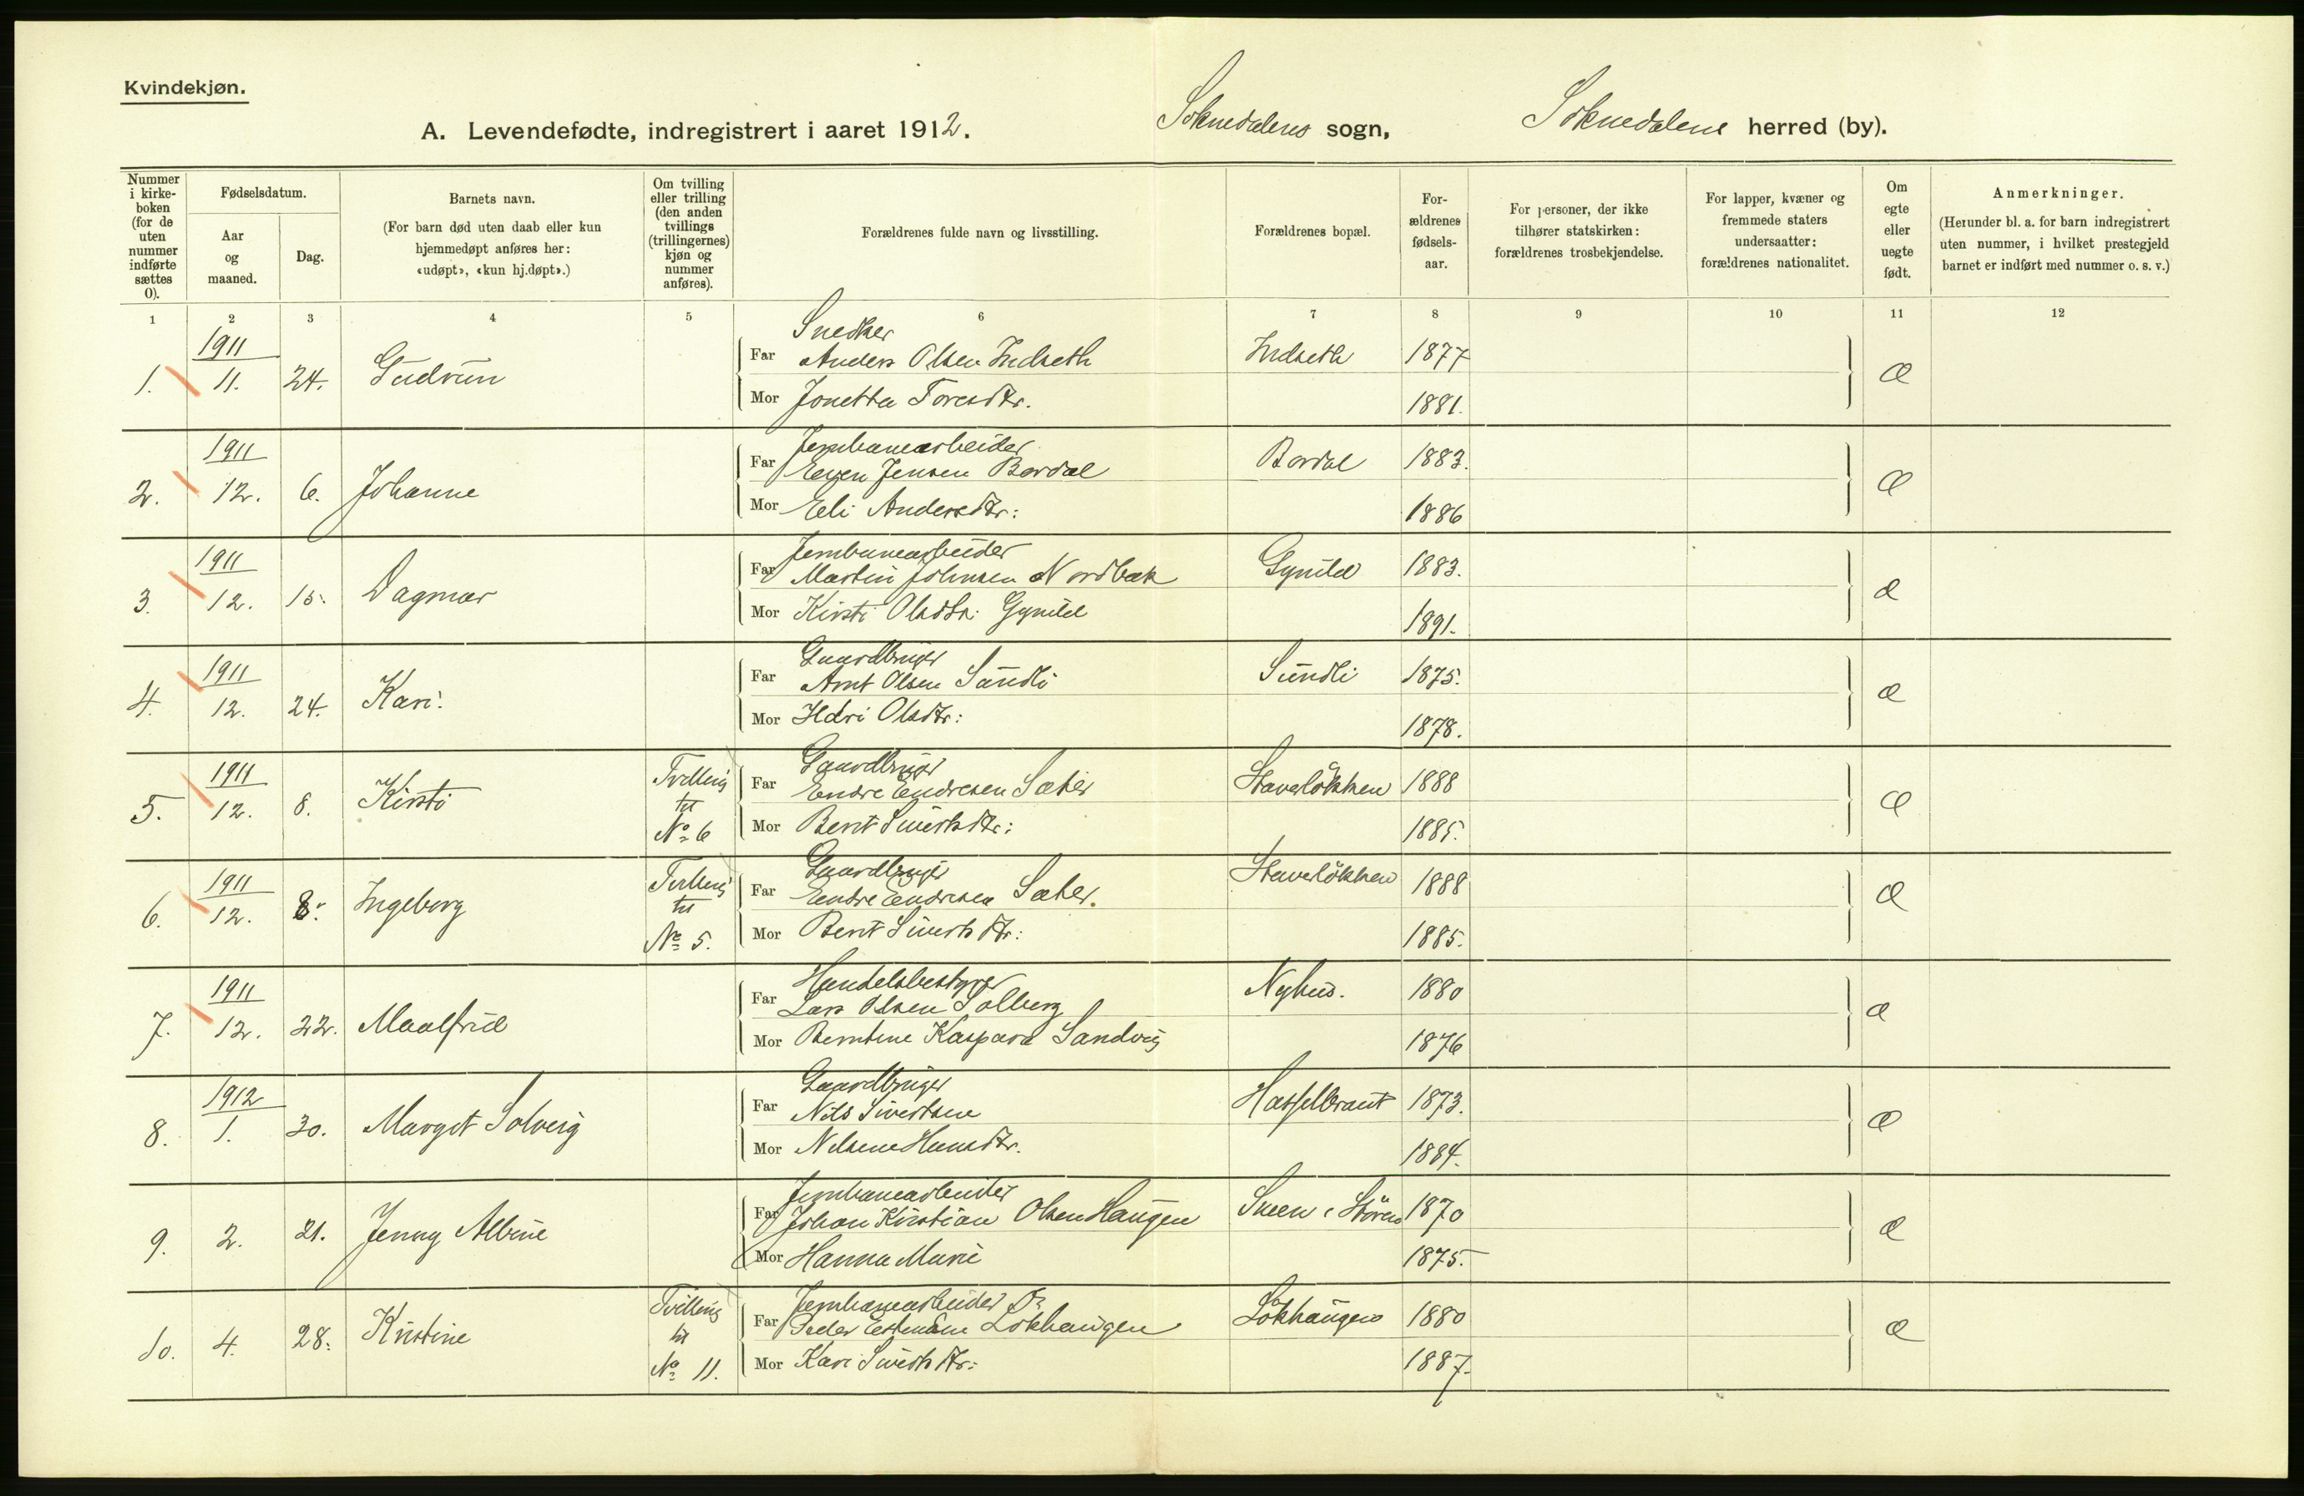 Kvindekjøn.
A. Levendefødte, indregistrert i aaret 1912. Soknedalens sogn, Soknedalens herred (by).
Nummer i kirkeboken (for de uten nummer indførte sættes 0).
Fødselsdatum.
Aar og maaned.
Dag.
Barnets navn.
(For barn død uten daab eller kun hjemmedøpt anføres her: «udøpt», «kun hj.døpt».)
Om tvilling eller trilling (den anden tvillings (trillingernes) kjøn og nummer anføres).
Forældrenes fulde navn og livsstilling.
Forældrenes bopæl.
Forældrenes fødselsaar.
For personer, der ikke tilhører statskirken: forældrenes trosbekjendelse.
For lapper, kvæner og fremmede staters undersaatter: forældrenes nationalitet.
Om egte eller uegte født.
Anmerkninger.
(Herunder bl. a. for barn indregistrert uten nummer, i hvilket prestegjeld barnet er indført med nummer o. s. v.)
1 2 3 4 5 6 7 8 9 10 11 12
1911
Snedker
1. 11. 24. Gudrun Far Anders Olsen Indseth Indseth 1877 Æ
Mor Jonetta Toresdtr. 1881.
1911
Jernbanearbeider
2. 12. 6. Johanne Far Even Jensen Bordal Bordal 1883. Æ
Mor Eli Andersdtr: 1886
1911
Jernbanearbeider
3. 12. 15. Dagmar Far Martin Johnsen Nordbæk Gynild 1883. Æ
Mor Kirsti Olsdtr. Gynild 1891.
1911
Gaardbruger
4. 12. 24. Kari. Far Arnt Olsen Sundli Sundli 1875. Æ
Mor Olsdtr: 1878.
1911
Gaardbruger
5. 12. 8. Kirsti Tvilling til No 6 Far Endre Endresen Sæter Staverløkken 1888 Æ
Mor Berit Sivertsdtr: 1885.
1911
Gaardbruger
6. 12. 8. Ingeborg Tvilling til No 5. Far Endre Endresen Sæter. Staverløkken 1888 Æ
Mor Berit Sivertsdtr: 1885.
1911
Handelsbestyrer
7. 12. 22. Maalfrid Far Lars Olsen Solberg Nyhus. 1880 Æ
Mor Berntine Kaspara Sandvig 1876
1912
Gaardbruger
8. 1. 30. Margot Solveig Far Nils Sivertsen Hasselbraut 1873. Æ
Mor Nilsine Hansdtr. 1884.
Jernbanearbeider
9. 2. 21. Jenny Albine Far Johan Kristian Olsen Haugen Sneen i Støren 1870 Æ
Mor Hanna Marie 1875.
Jernbanearbeider
10. 4. 28. Kristine Tvilling til No 11. Far Peder Estensen Løkhaugen Løkhaugen 1880 Æ
Mor Kari Sivertsdtr: 1887.